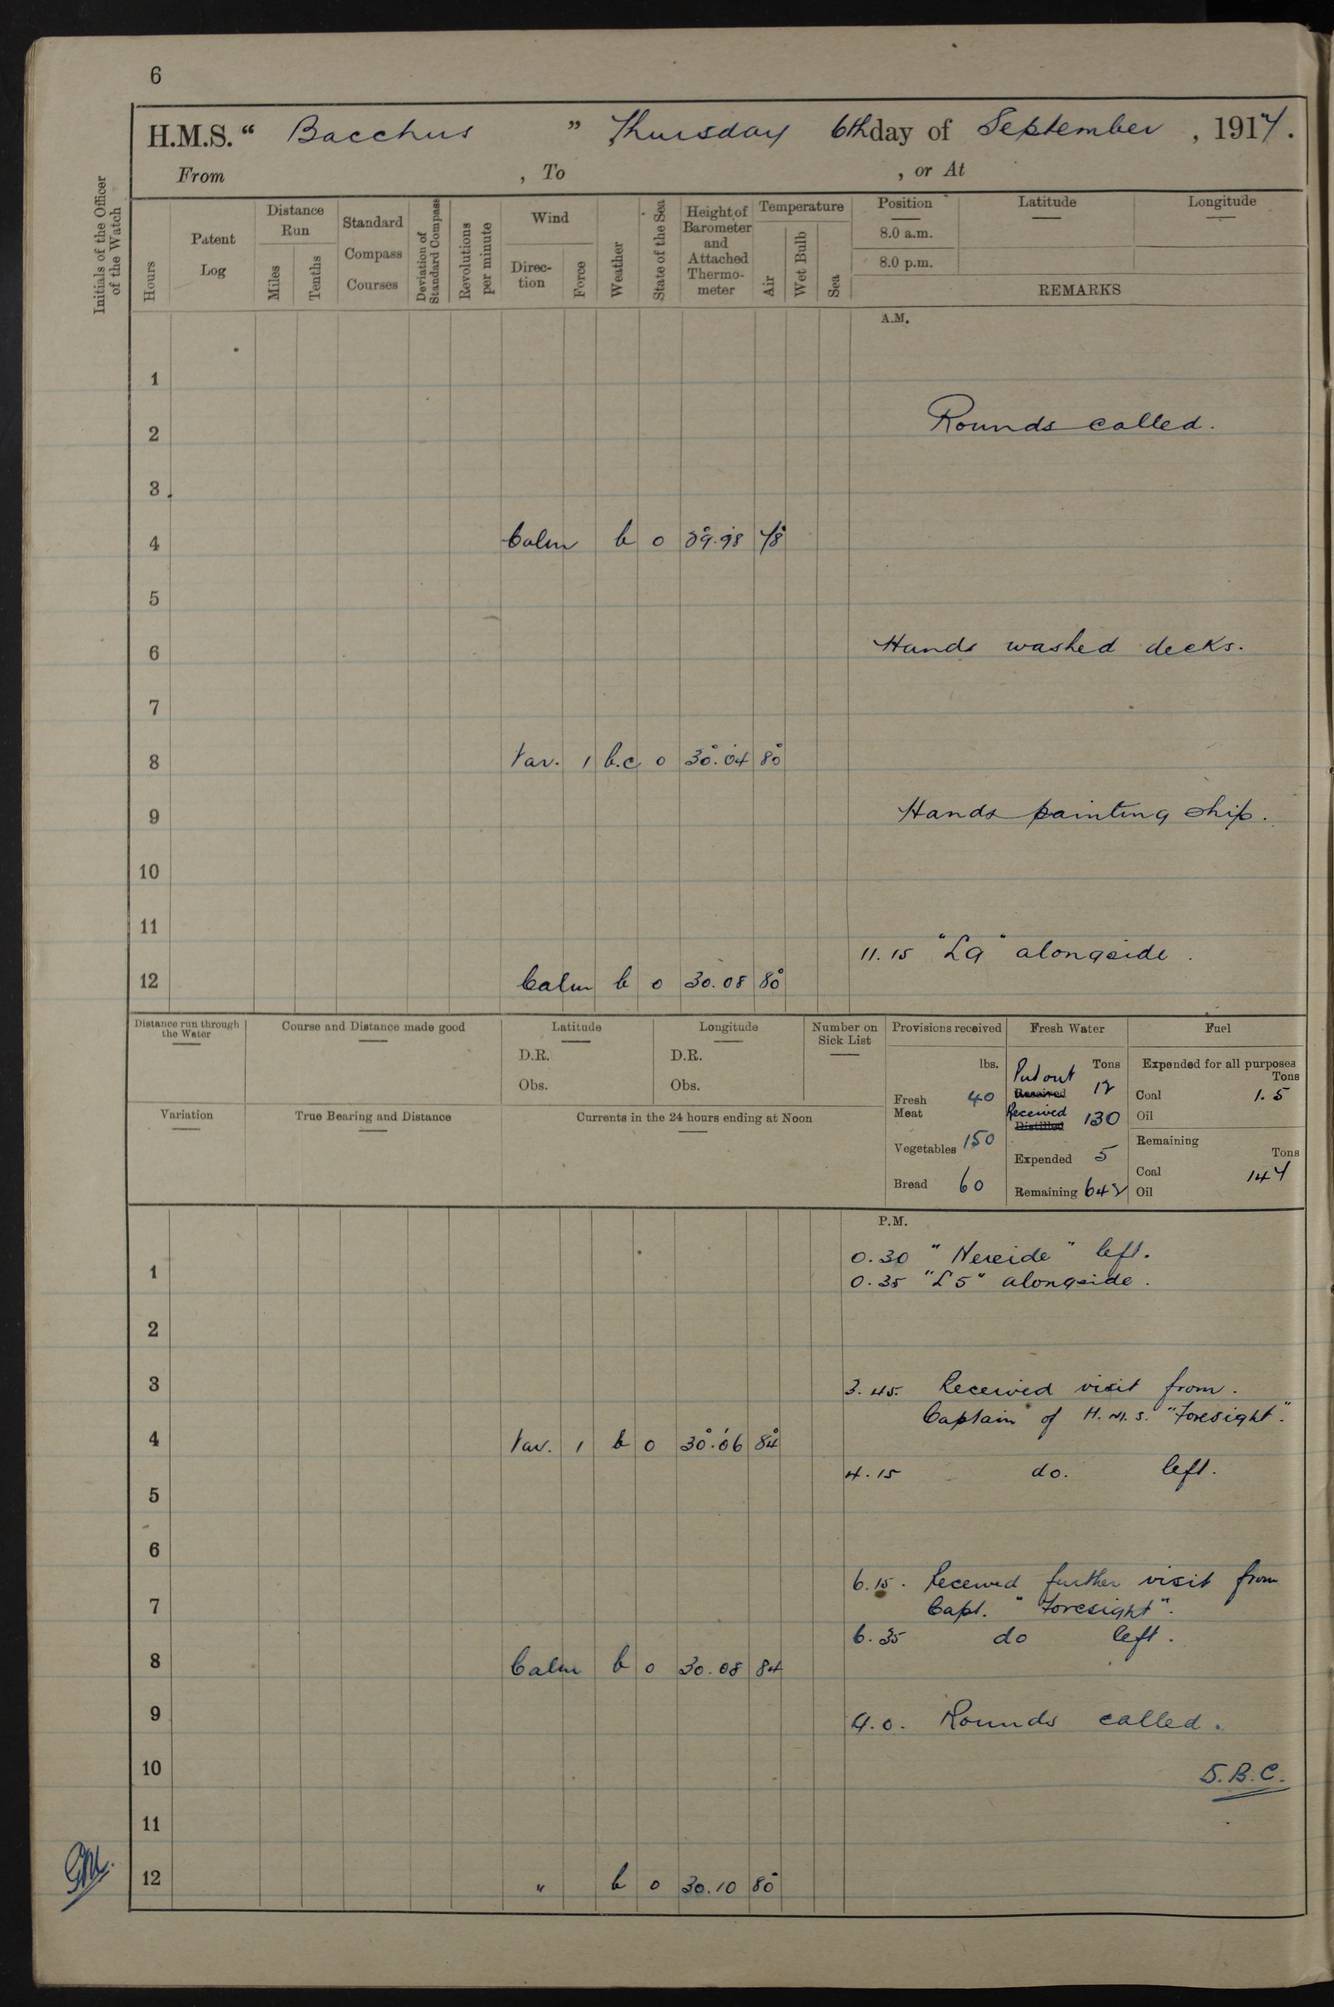 6
H.M.S. “ Bacchus ” Thursday 6th day of September , 1917.
From , To , or At
Initials of the Officer of the Watch
Hours
Patent Log
Distance Run
Miles
Tenths
Standard Compass Courses
Deviation of Standard Compass
Revolutions per minute
Wind
Direction
Force
Weather
State of the Sea
Height of Barometer and Attached Thermometer
Temperature
Air
Wet Bulb
Sea
Position
8.0 a.m.
8.0 p.m.
Latitude
Longitude
REMARKS
A.M.
1
2 Rounds called.
3
4 Calm b 0 29.98 78°
5
6 Hands washed decks.
7
8 Var. 1 b.c 0 30.04 80°
9 Hands painting ship.
10
11
11.15 "L9" alongside.
12 Calm b 0 30.08 80°
Distance run through the Water
Course and Distance made good
Latitude
D.R.
Obs.
Longitude
D.R.
Obs.
Number on Sick List
Provisions received
lbs.
Fresh Meat 40
Vegetables 150
Bread 60
Fresh Water
Tons
Put out Received 12
Received Distilled 130
Expended 5
Remaining 642
Fuel
Expended for all purposes
Tons
Coal 1.5
Oil
Remaining
Tons
Coal 147
Oil
Variation
True Bearing and Distance
Currents in the 24 hours ending at Noon
P.M.
0.30 "Nereide" left.
1 0.35 "L5" alongside.
2
3 3.45. Received visit from
Captain of H.M.S. "Foresight".
4 Var. 1 b 0 30.06 84°
4.15 do. left.
5
6
6.15. Received further visit from
7 Capt. "Foresight".
6.35 do left.
8 Calm b 0 30.08 84
9 9.0. Rounds called.
10 S.B.C.
11
12 " b 0 30.10 80°